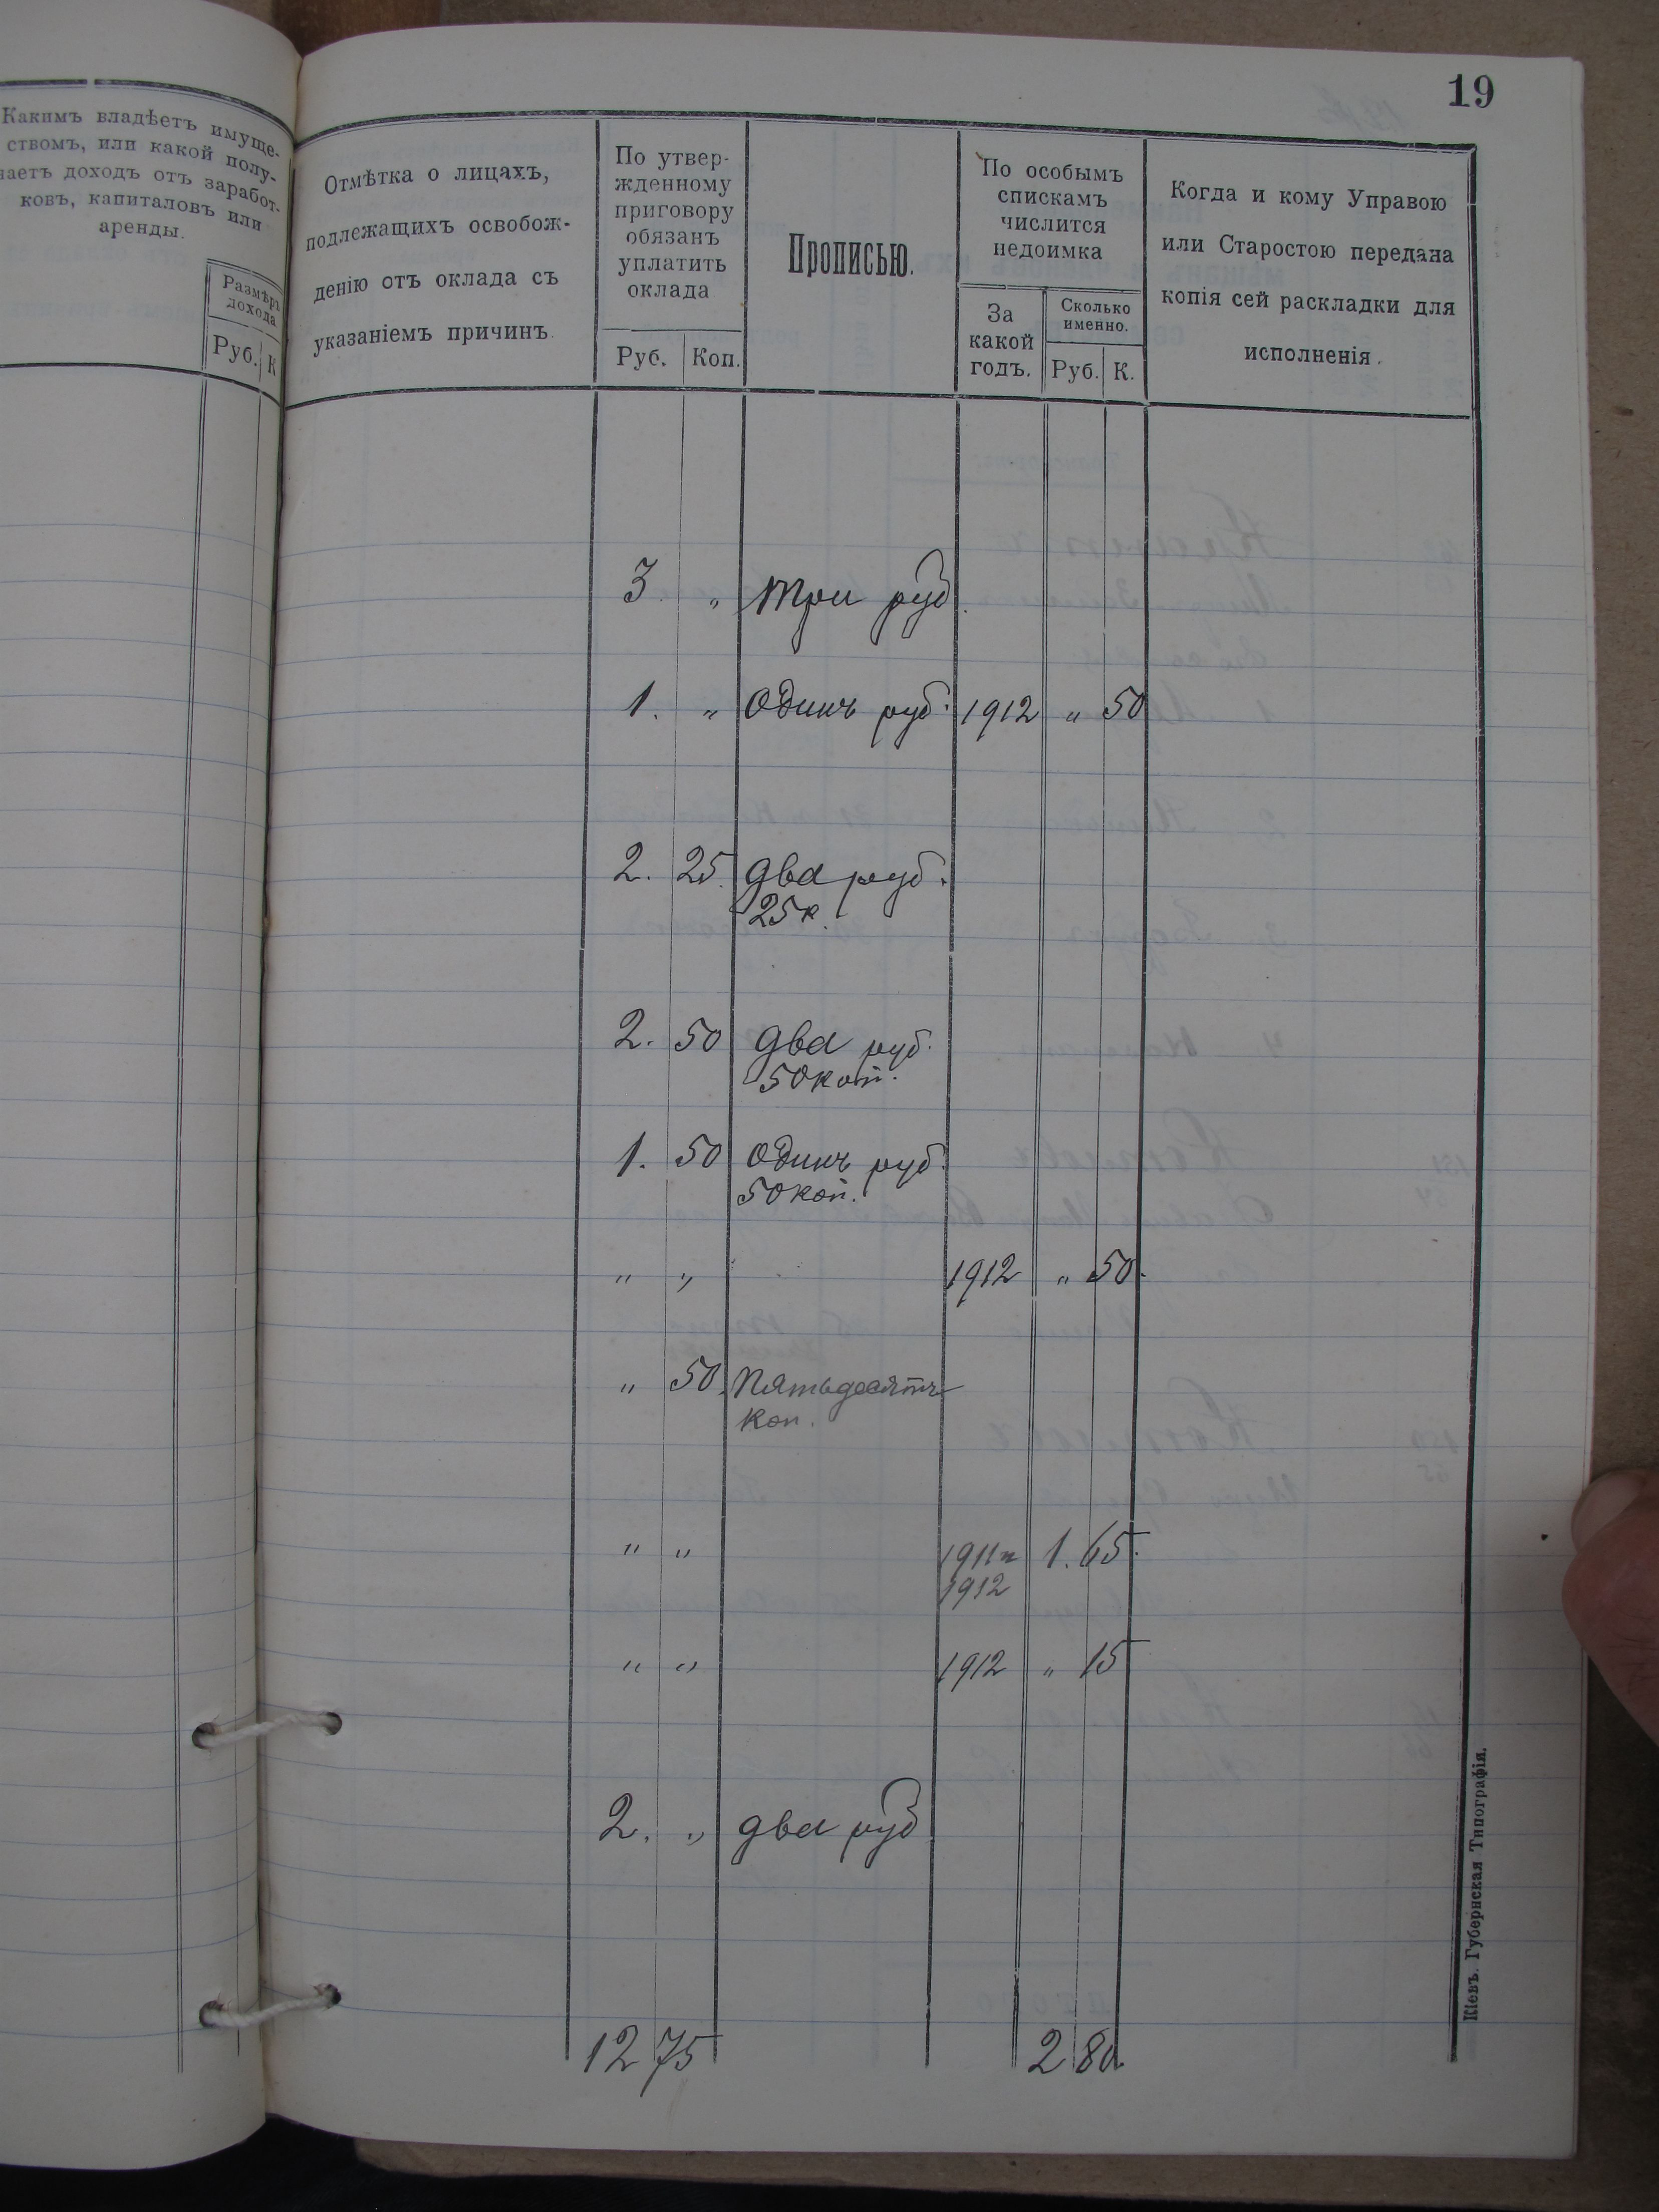 19
Какимъ владѣетъ имуще-
ствомъ, или какой полу-
чаетъ доходъ отъ заработ-
ковъ, капиталовъ или
аренды.
Размѣръ
дохода
Руб. К
Отмѣтка о лицахъ,
подлежащихъ освобож-
денію отъ оклада съ
указаніемъ причинъ.
По утвер-
жденному
приговору
обязанъ
уплатить
оклада
Руб. Коп.
Прописью.
По особымъ
спискамъ
числится
недоимка
За
какой
годъ.
Сколько
именно.
Руб. К.
Когда и кому Управою
или Старостою передана
копія сей раскладки для
исполненія.
3 „ три руб.
1. „ Одинъ руб. 1912 „ 50
2. 25. два руб.
25 к.
2. 50 два руб.
50 коп.
1. 50 Одинъ руб.
50 коп.
„ „ 1912 „ 50.
„ 50. Пятьдесятъ
коп.
„ „ 1911 и 1. 65.
1912
„ „ 1912 „ 15
2. „ два руб
12 75 2 80.
Кіевъ. Губернская Типографія.